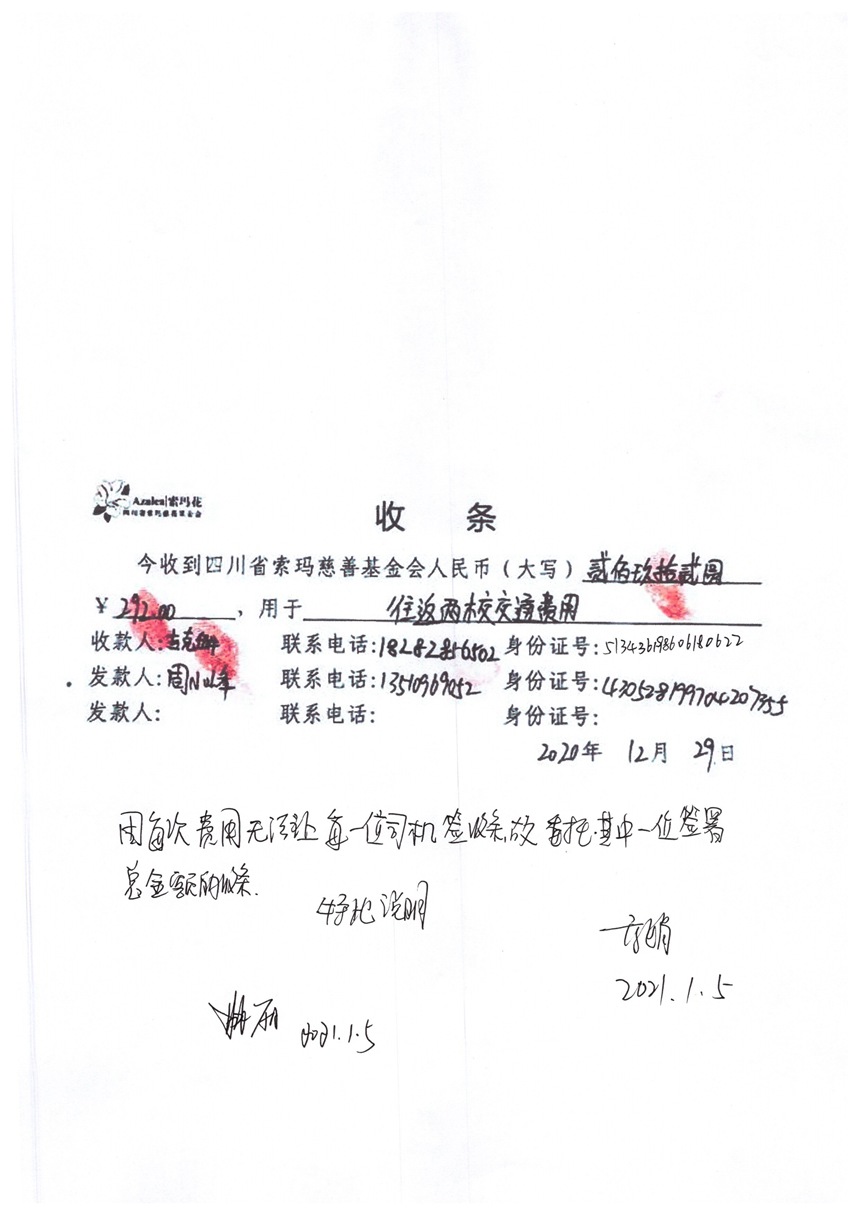 Azalea|索玛花
四川省索玛慈善基金会
收 条
今收到四川省索玛慈善基金会人民币（大写）贰佰玖拾贰圆
￥292.00，用于往返两校交通费用
收款人:吉克 联系电话:18282856502 身份证号:513436198606180622
发款人:周 联系电话:13510969052 身份证号:430528199704207355
发款人: 联系电话: 身份证号:
2020年 12月 29日
因每次费用无法让每一位司机签收条,故委托其中一位签署
总金额的收条.
特此说明
2021.1.5
2021.1.5